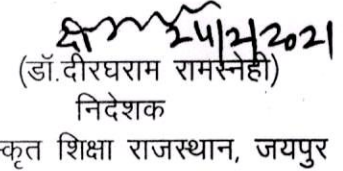 24/2/2021
(डॉ.दीरघराम रामस्नेही)
निदेशक
कृत शिक्षा राजस्थान, जयपुर